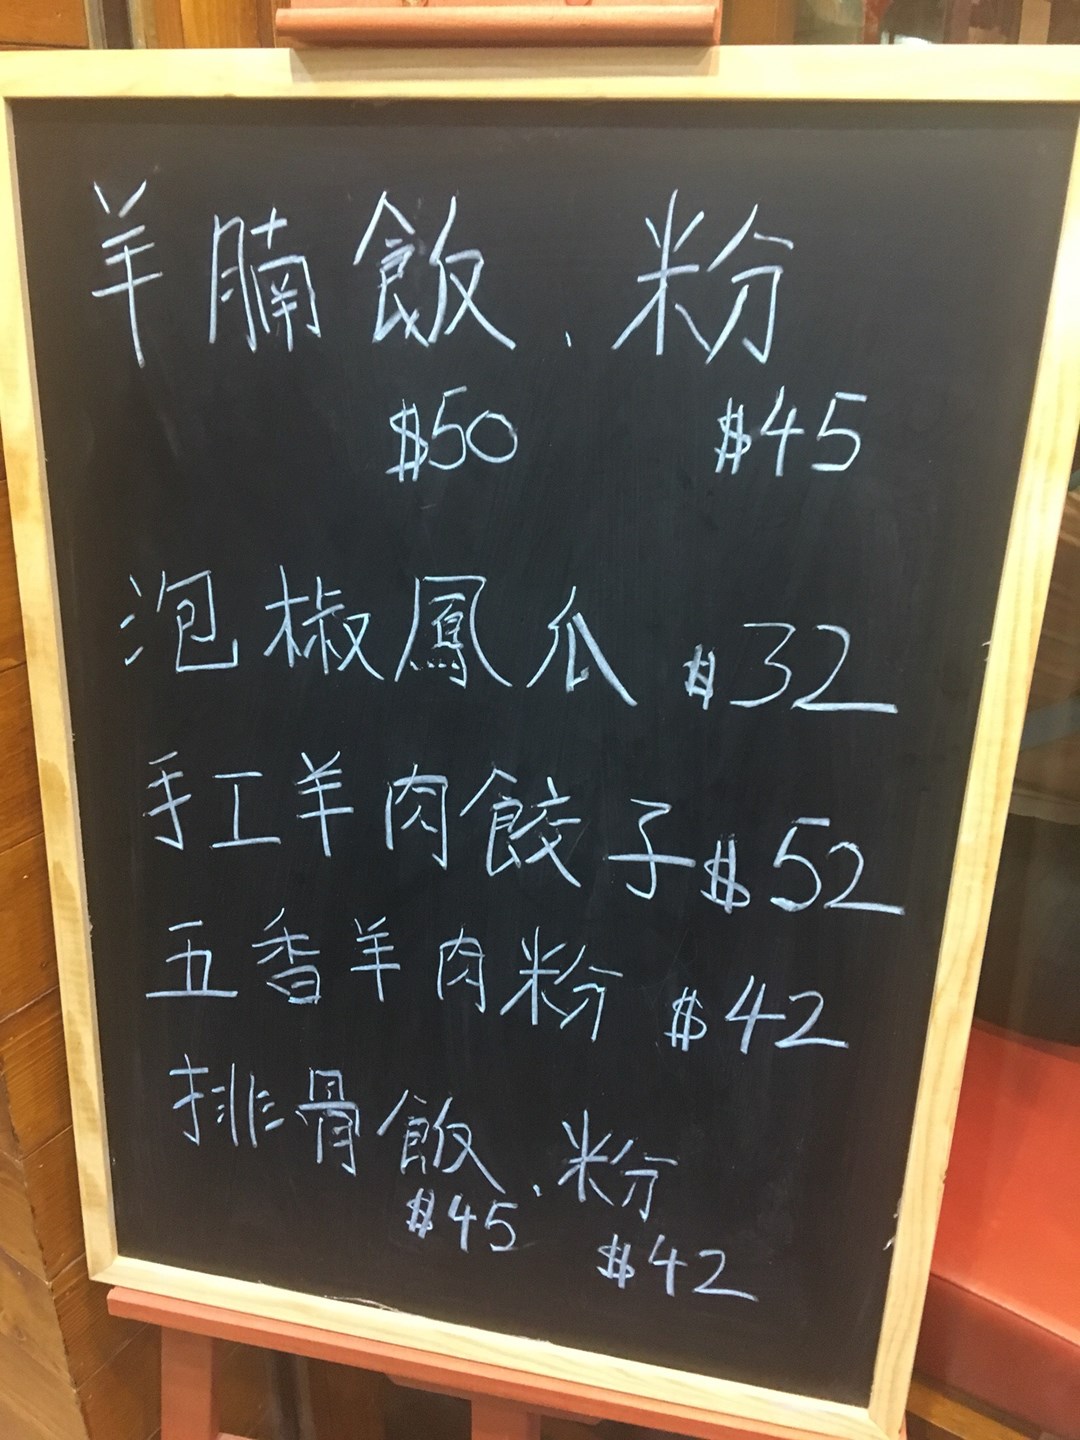 羊腩飯、粉
$50 $45
泡椒鳳瓜 $32
手工羊肉餃子 $52
五香羊肉粉 $42
排骨飯、粉
$45 $42